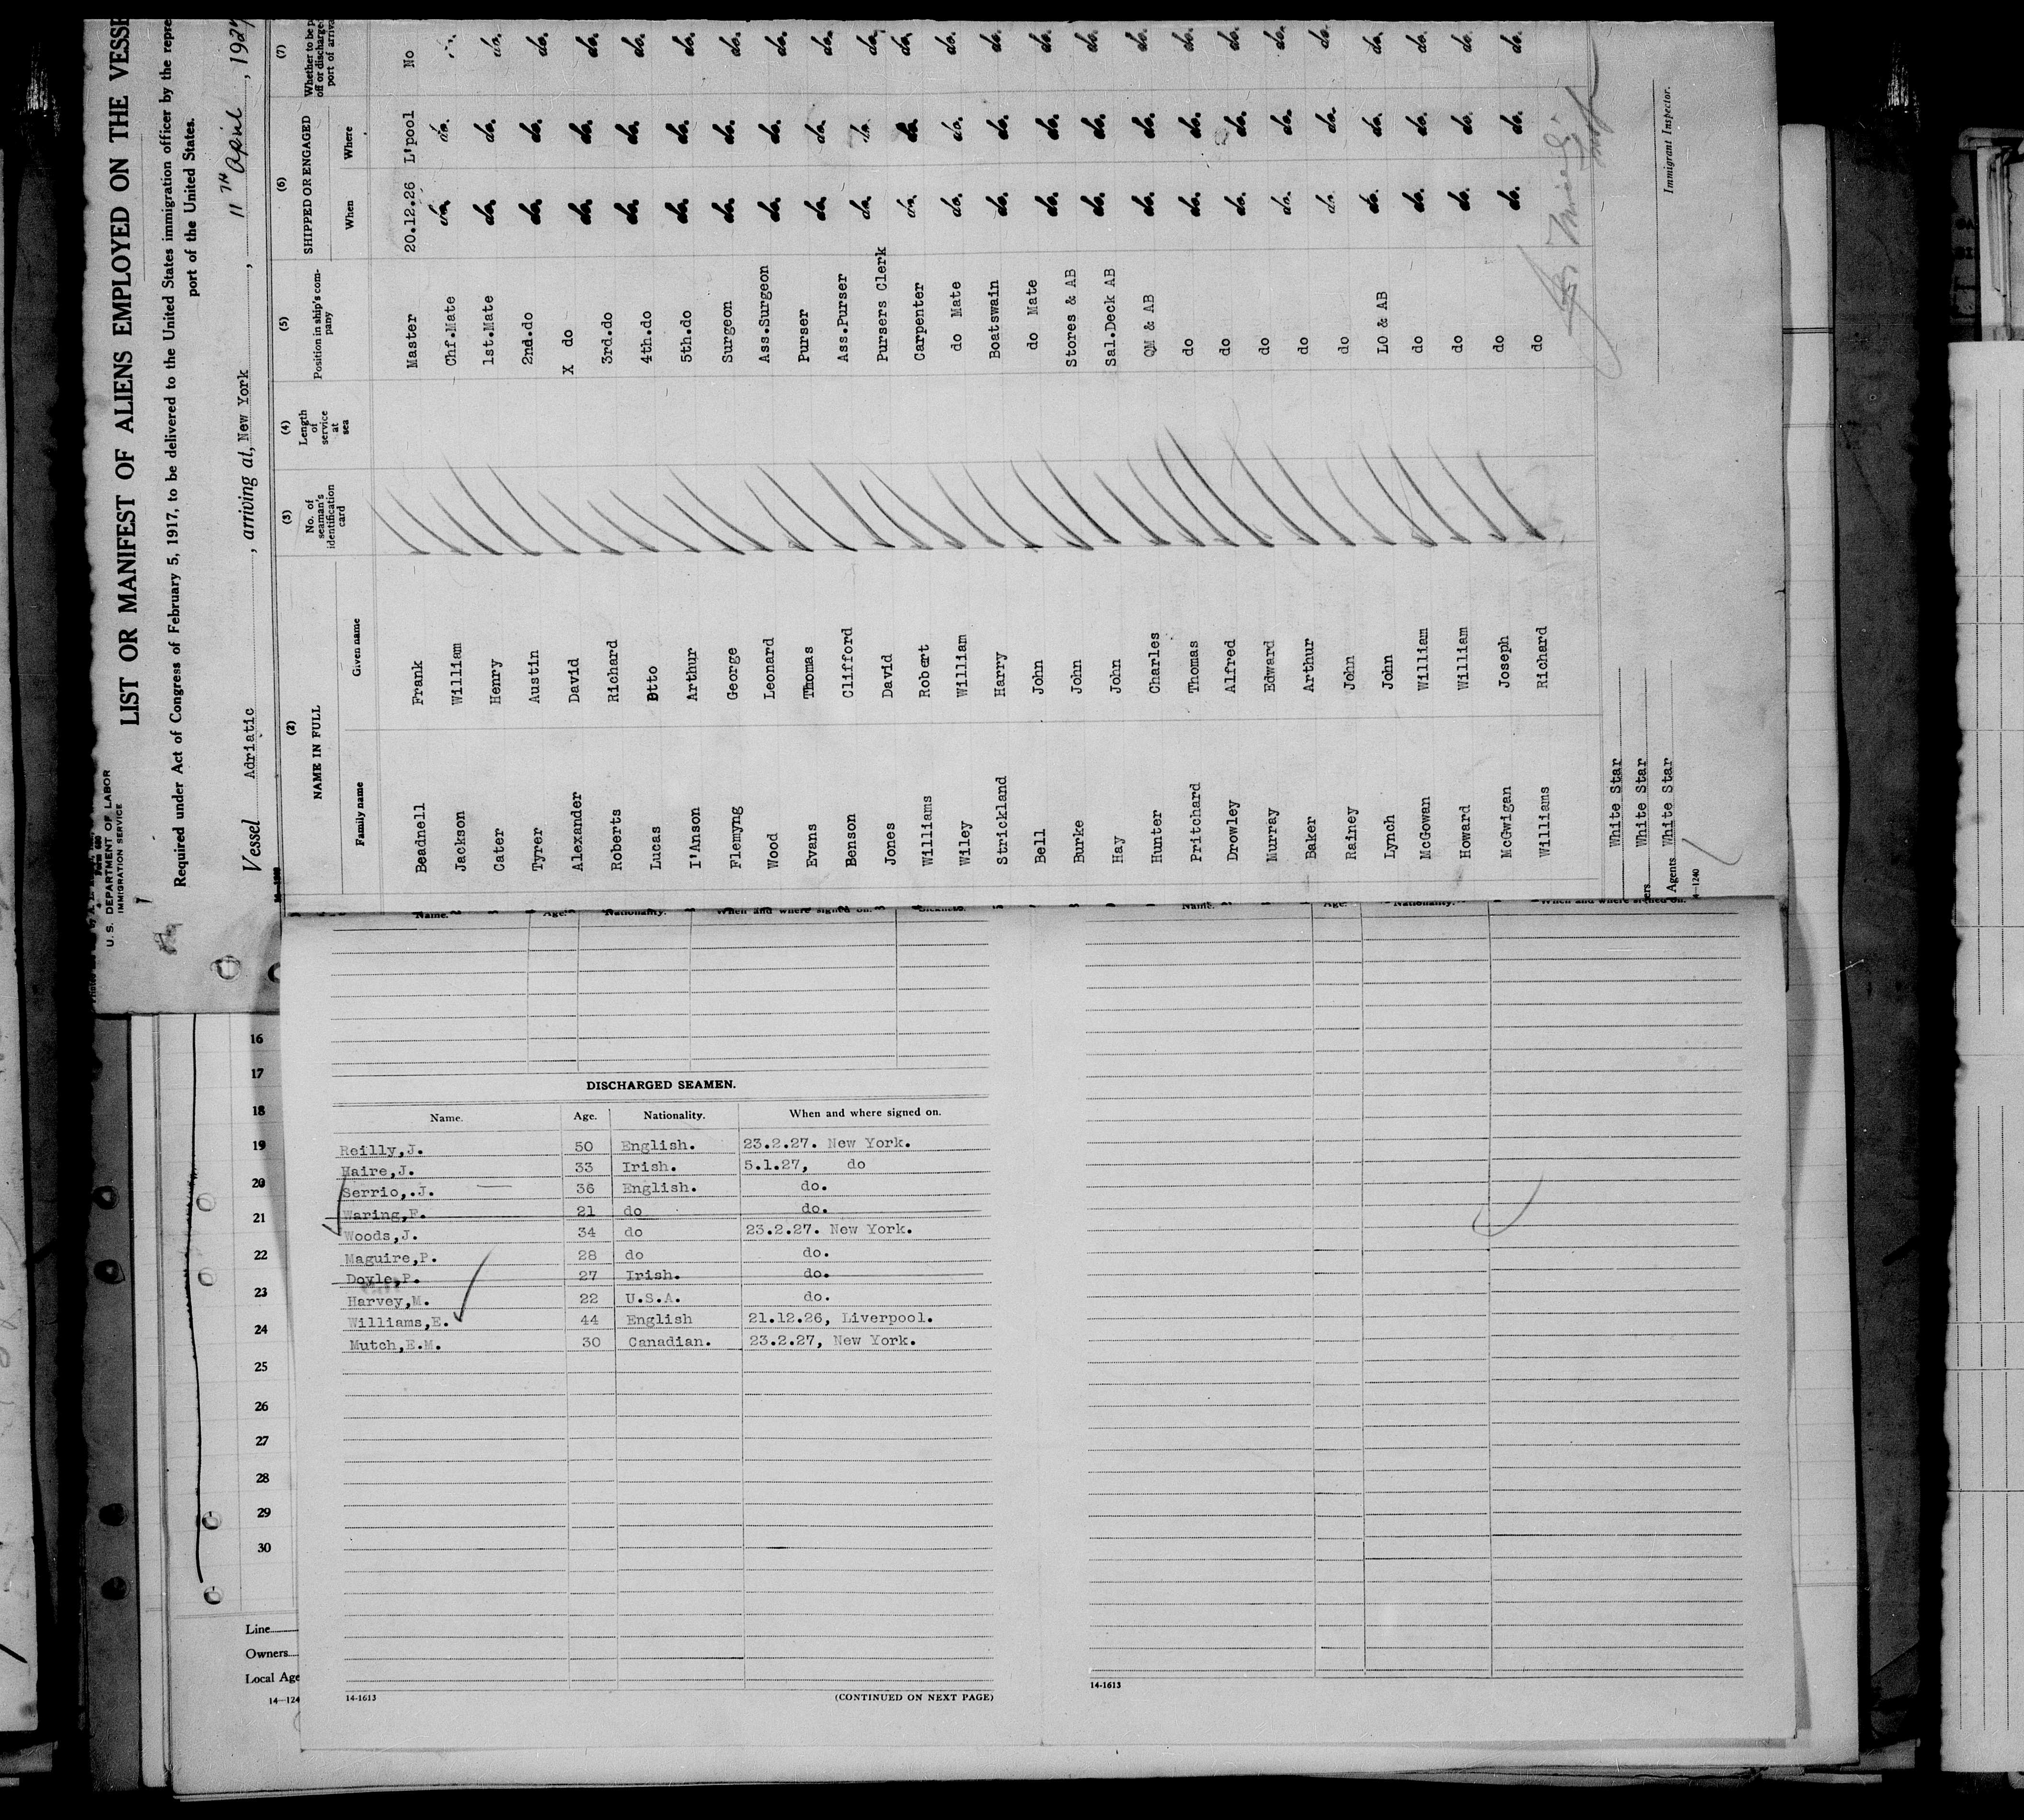 U. S. DEPARTMENT OF LABOR
IMMIGRATION SERVICE
LIST OR MANIFEST OF ALIENS EMPLOYED ON THE VESSE
Required under Act of Congress of February 5, 1917, to be delivered to the United States immigration officer by the repre
port of the United States.
Vessel Adriatic, arriving at, New York, 11TH April, 1927
(2) (3) (4) (5) (6) (7)
NAME IN FULL No. of seaman's identification card Length of service at sea Position in ship's company SHIPPED OR ENGAGED Whether to be p off or discharge port of arriva
Family name Given name When Where
Beadnell Frank Master 20.12.26 L'pool No
Jackson William Chf.Mate do. do.
Cater Henry 1st.Mate do. do. do.
Tyrer Austin 2nd.do do. do. do.
Alexander David X do do. do. do.
Roberts Richard 3rd.do do. do. do.
Lucas Otto 4th.do do. do. do.
I'Anson Arthur 5th.do do. do. do.
Flemyng George Surgeon do. do. do.
Wood Leonard Ass.Surgeon do. do. do.
Evans Thomas Purser do. do. do.
Benson Clifford Ass.Purser do. do. do.
Jones David Pursers Clerk do. do. do.
Williams Robert Carpenter do. do. do.
Wiley William do Mate do. do. do.
Strickland Harry Boatswain do. do. do.
Bell John do Mate do. do. do.
Burke John Stores & AB do. do. do.
Hay John Sal.Deck AB do. do. do.
Hunter Charles QM & AB do. do. do.
Pritchard Thomas do do. do. do.
Drowley Alfred do do. do. do.
Murray Edward do do. do. do.
Baker Arthur do do. do. do.
Rainey John do do. do. do.
Lynch John LO & AB do. do. do.
McGowan William do do. do. do.
Howard William do do. do. do.
McGwigan Joseph do do. do. do.
Williams Richard do
White Star
ers White Star
Agents White Star
Immigrant Inspector.
4-1240
Name. Age. Nationality. When and where signed on. Sickness. Name. Age. Nationality. When and where signed on.
DISCHARGED SEAMEN.
Name. Age. Nationality. When and where signed on.
Reilly,J. 50 English. 23.2.27. New York.
Haire,J. 33 Irish. 5.1.27, do
Serrio,.J. 36 English. do.
Waring,F. 21 do do.
Woods,J. 34 do 23.2.27. New York.
Maguire,P. 28 do do.
Doyle,P. 27 Irish. do.
Harvey,M. 22 U.S.A. do.
Williams,E. 44 English 21.12.26, Liverpool.
Mutch,E.M. 30 Canadian. 23.2.27, New York.
14-1613 (CONTINUED ON NEXT PAGE)
14-1613
16
17
18
19
20
21
22
23
24
25
26
27
28
29
30
Line
Owners
Local Age
14-124